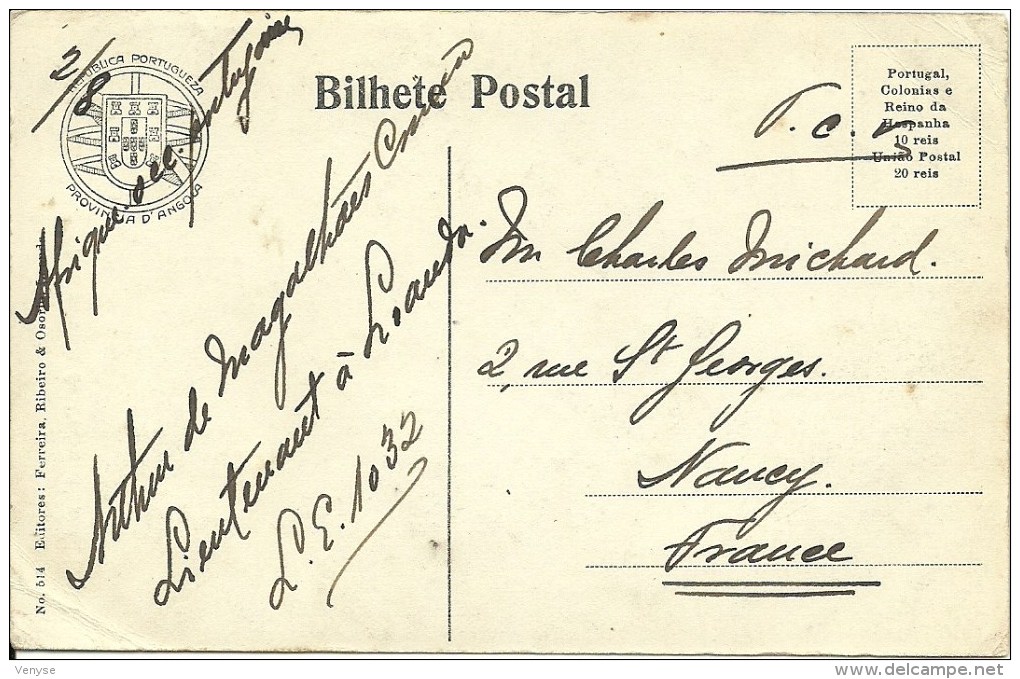 2/8
REPUBLICA PORTUGUEZA
PROVINCIA D'ANGOLA
Bilhete Postal
Portugal,
Colonias e
Reino da
Hespanha
10 reis
União Postal
20 reis
T.c.v
Afrique occ. portugaise
Arthur de Magalhães Corrêa
Lieutenant à Loanda.
L. E. 1032
Mr Charles Michard.
2, rue St Georges.
Nancy.
France
No. 514 Editores: Ferreira, Ribeiro & Osorio
Venyse
www.delcampe.net